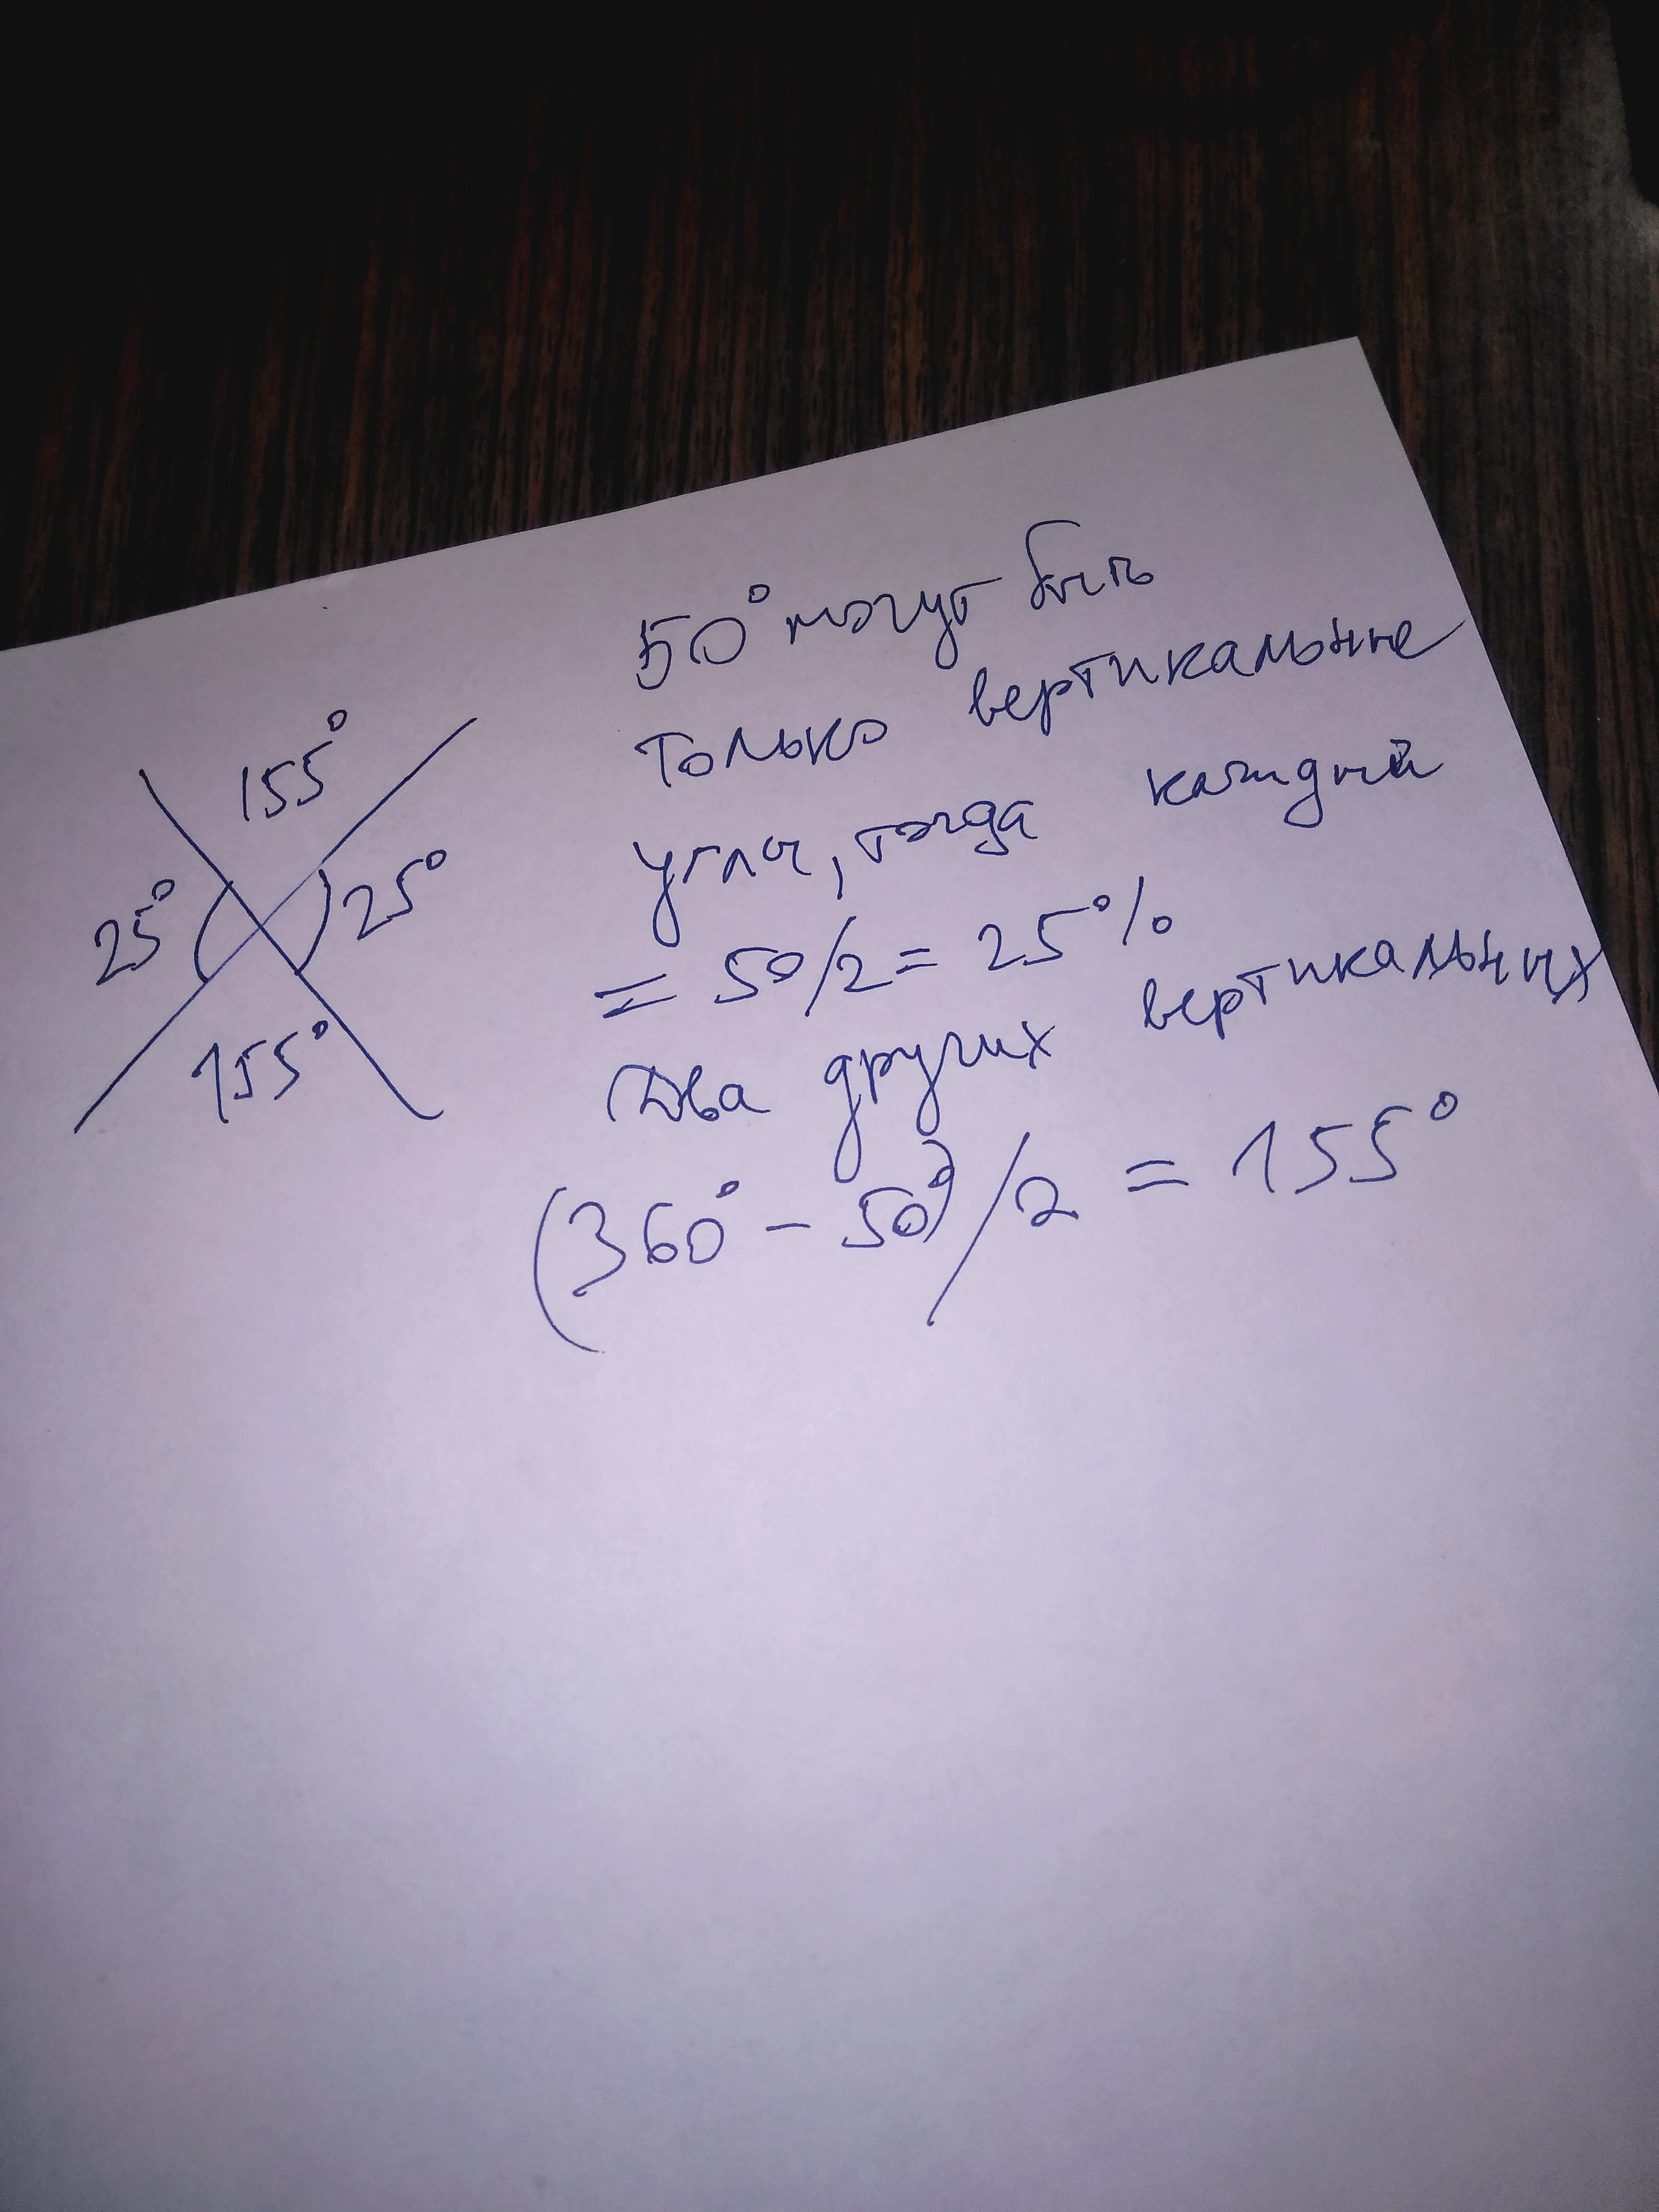 155°
25°
25°
155°
50° могут быть
только вертикальные
углы, тогда каждый
= 50/2 = 25°%
Два других вертикальных
(360° - 50°)/2 = 155°